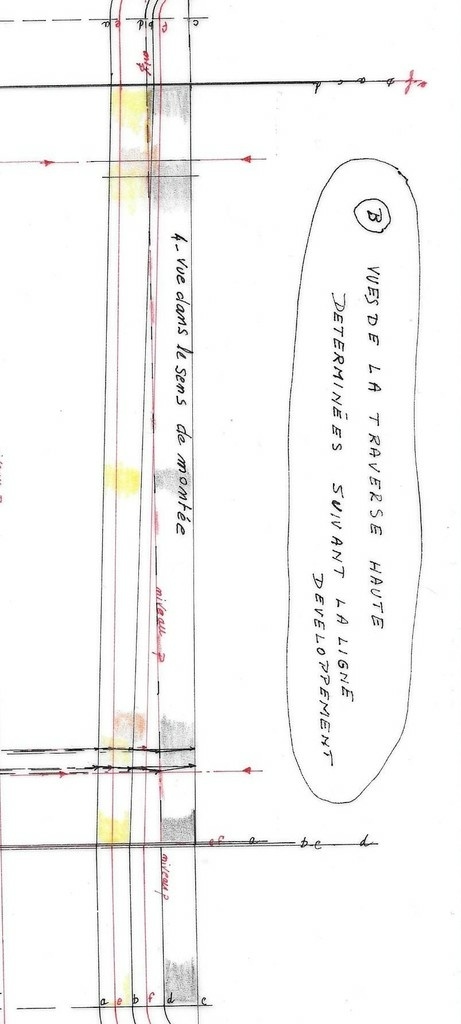 B
VUES DE LA TRAVERSE HAUTE
DETERMINÉES SUIVANT LA LIGNE
DEVELOPPEMENT
4 - vue dans le sens de montée
niveau p
niveau p
a e b f d c
e f a b c d